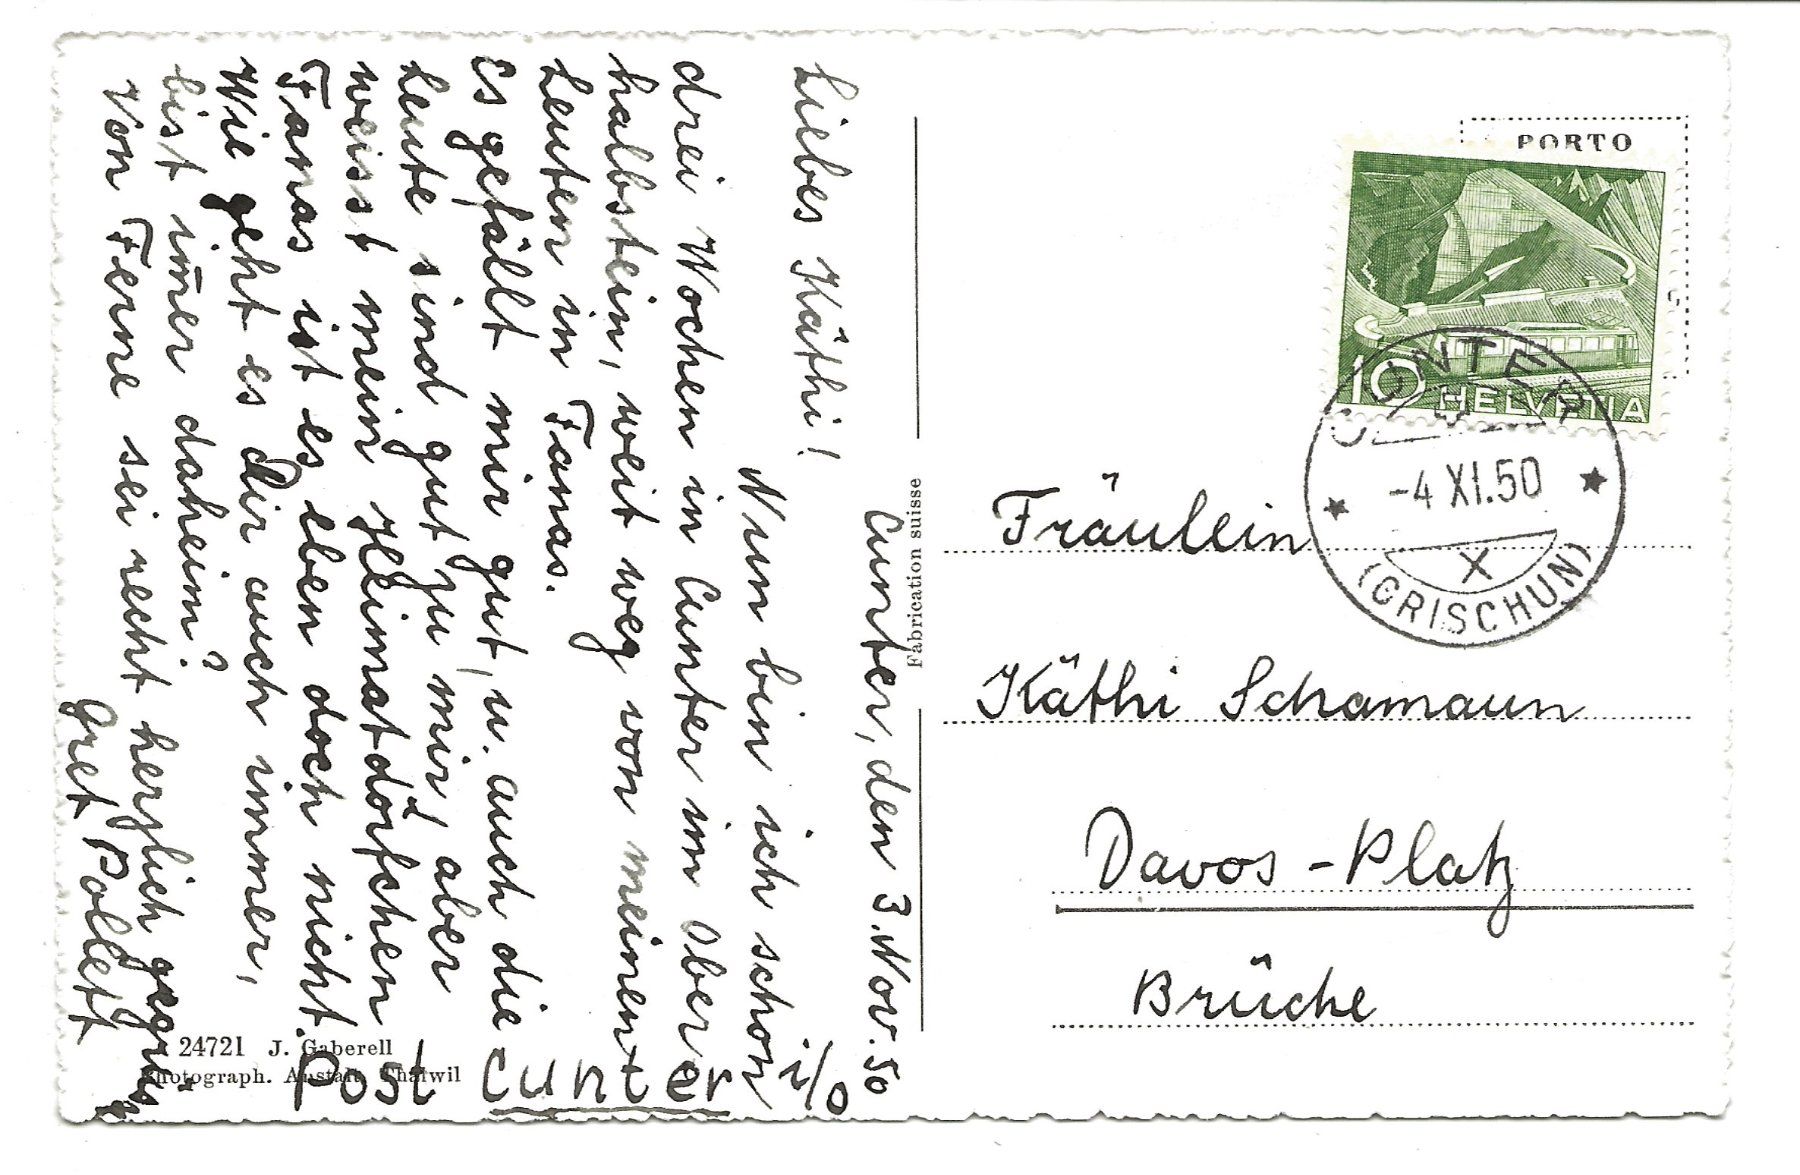 Cunter, den 3. Nov. 50
Liebes Käthi!
Nun bin ich schon
drei Wochen in Cunter im Ober
halbstein, weit weg von meinen
Leuten in Fanas.
Es gefällt mir gut, u. auch die
Leute sind gut zu mir, aber
weisst mein Heimatdörfchen
Fanas ist es eben doch nicht.
Wie geht es Dir auch immer,
bist im̄er daheim?
Von Ferne sei recht herzlich gegrüs
Gret Pollett
Post Cunter i/O
24721 J. Gaberell
Photograph. Anstalt, Thalwil
Fabrication suisse
PORTO
10 HELVETIA
CUNTER
-4 XI.50
X
(GRISCHUN)
Fräulein
Käthi Schamaun
Davos-Platz
Brüche